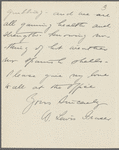 3
and we are
all gaining health and
strength. Knowing no-
thing of but weather
nor Spanish shells.
Please give my love
to all at the office
Yours Sincerely
A. Lewis